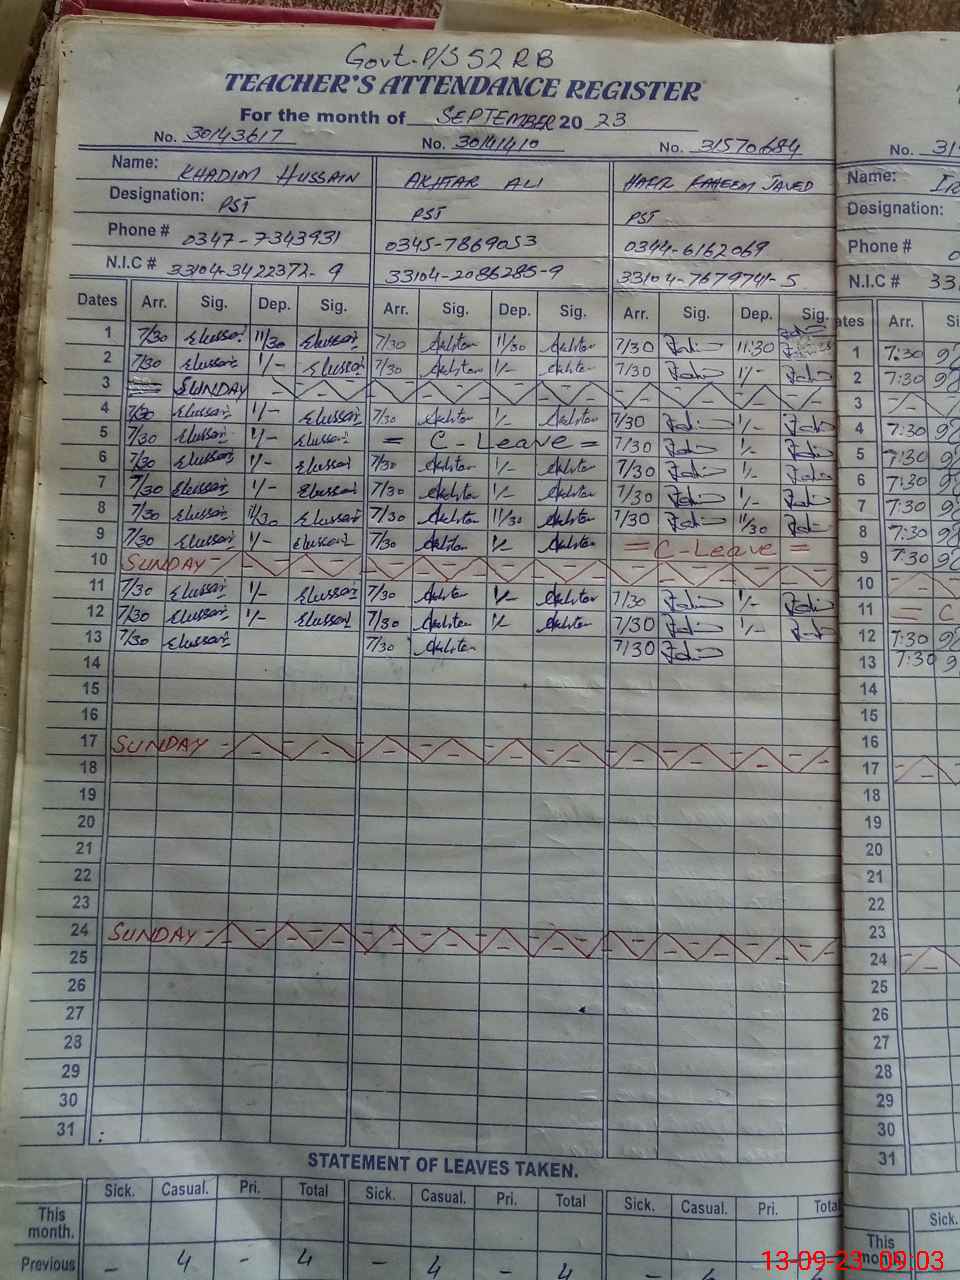 Govt. P/S 52 RB
TEACHER'S ATTENDANCE REGISTER
For the month of SEPTEMBER 2023
No. 30143617 No. 30141410 No. 31570684 No. 31
Name: KHADIM HUSSAIN AKHTAR ALI RAHEEM JAVED Name:
Designation: PST PST PST Designation:
Phone # 0347-7343931 0345-7869053 0344-6162069 Phone #
N.I.C # 33104-3422372-9 33104-2086285-9 33104-7679741-5 N.I.C # 33
Dates Arr. Sig. Dep. Sig. Arr. Sig. Dep. Sig. Arr. Sig. Dep. Sig. ates Arr.
1 7/30 11/30 7/30 Akhtar 11/30 Akhtar 7/30 11:30 1 7:30
2 7/30 1/- 7/30 Akhtar 1/- Akhtar 7/30 1/- 2 7:30
3 SUNDAY 3
4 7/30 1/- 7/30 Akhtar 1/- Akhtar 7/30 1/- 4 7:30
5 7/30 1/- = C-Leave = 7/30 1/- 5 7:30
6 7/30 1/- 7/30 Akhtar 1/- Akhtar 7/30 1/- 6 7:30
7 7/30 1/- 7/30 Akhtar 1/- Akhtar 7/30 1/- 7 7:30
8 7/30 11/30 7/30 Akhtar 11/30 Akhtar 7/30 11/30 8 7:30
9 7/30 1/- 7/30 Akhtar 1/- Akhtar = C-Leave = 9 7:30
10 SUNDAY 10
11 7/30 1/- 7/30 Akhtar 1/- Akhtar 7/30 1/- 11 = C
12 7/30 1/- 7/30 Akhtar 1/- Akhtar 7/30 1/- 12 7:30
13 7/30 7/30 Akhtar 7/30 13 7:30
14 14
15 15
16 16
17 SUNDAY 17
18 18
19 19
20 20
21 21
22 22
23 23
24 SUNDAY 24
25 25
26 26
27 27
28 28
29 29
30 30
31 31
STATEMENT OF LEAVES TAKEN.
Sick. Casual. Pri. Total Sick. Casual. Pri. Total Sick. Casual. Pri. Total Sick.
This month. This month.
Previous - 4 - 4 - 4 - 4 -
13-09-23 09:03